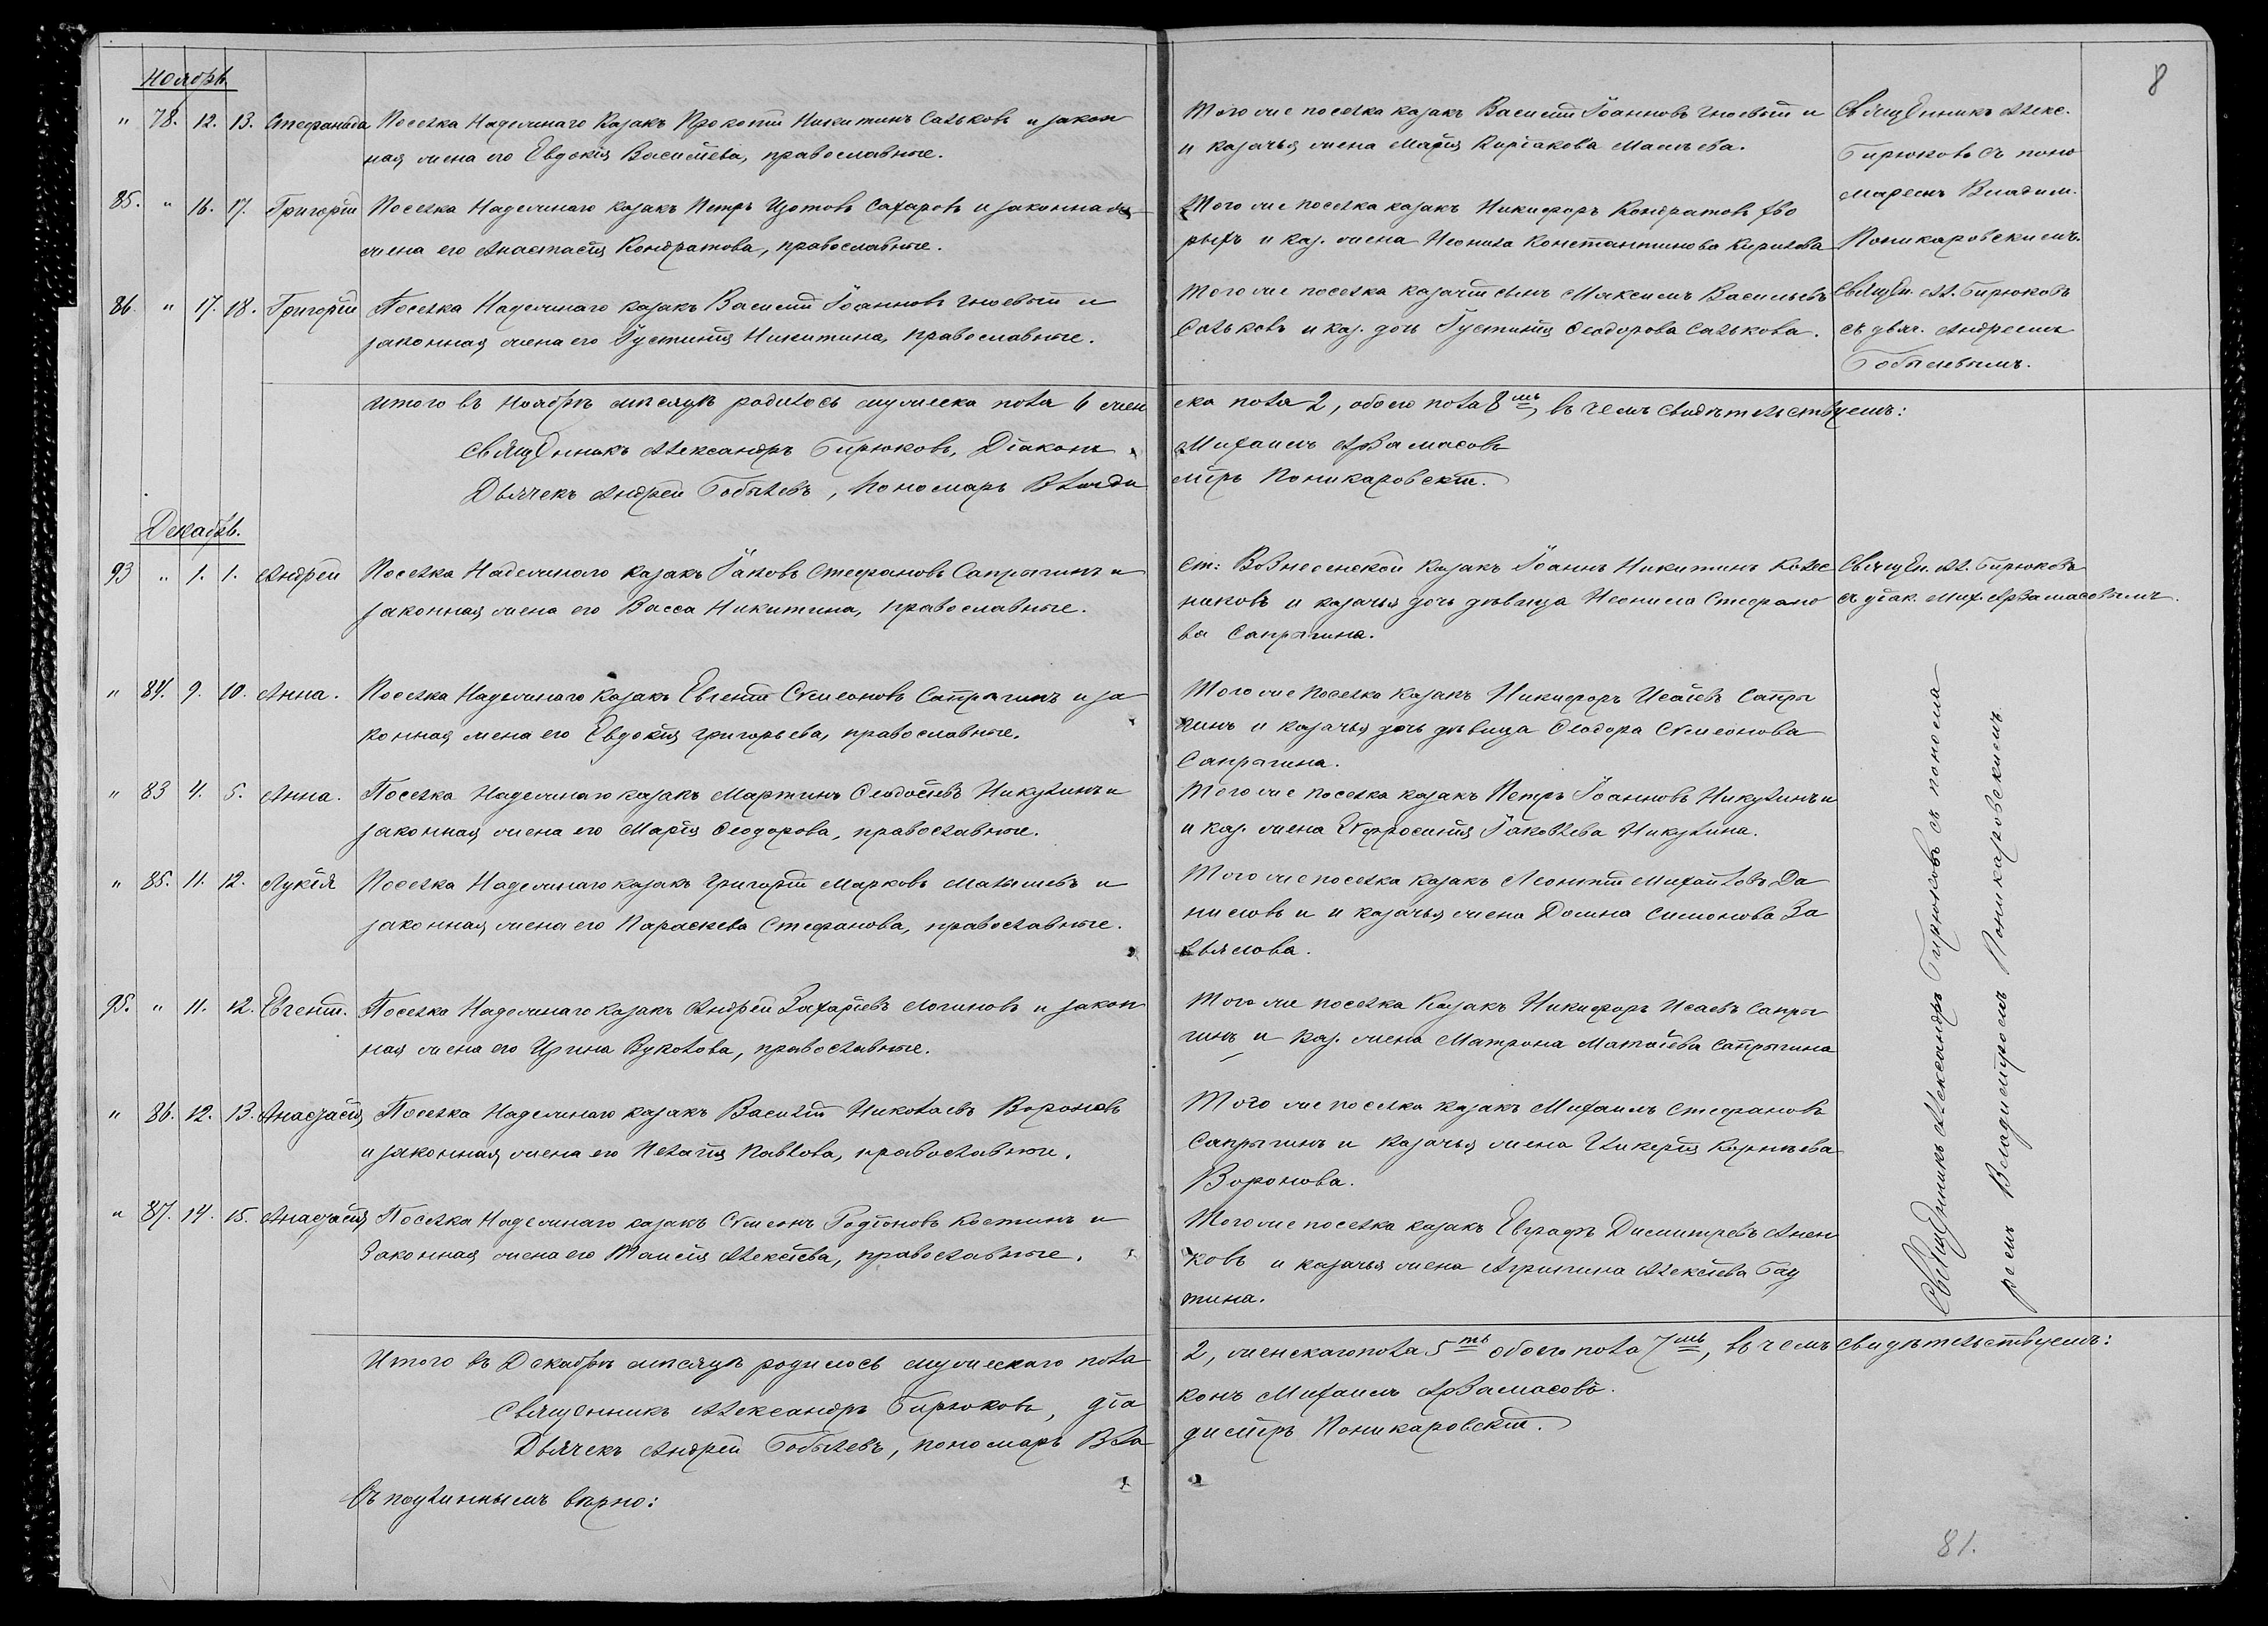 8
Ноябрь.
" 78. 12. 13. Стефанида Поселка Надежинаго Казакъ Прокопій Никитинъ Сальковъ и закон
ная жена его Евдокія Васильева, православные.
Того же поселка казакъ Василій Іоанновъ Гноевый и
и казачья жена Марія Киріакова
Священникъ Алекс.
Бирюковъ съ поно
маремъ Владим.
Поникаровскимъ.
85. " 16. 17. Григорій Поселка Надежинаго казакъ Петръ Изотовъ Сахаровъ и законная
жена его Анастасія Кондратова, православные.
Того же поселка казакъ Никифоръ Кондратовъ
и каз. жена Неонила Константинова Кирилова
86. " 17. 18. Григорій Поселка Надежинаго казакъ Василій Іоанновъ Гноевый и
законная жена его Іустинія Никитина, православные.
Того же поселка казачій сынъ Максимъ Васильевъ
Сальковъ и каз. дочь Іустинія Феодорова Салькова.
Священ. Ал. Бирюковъ
съ дьяч. Андреемъ
Бобылевымъ.
Итого въ Ноябрѣ мѣсяцѣ родилось мужеска пола 6 жен
ска пола 2, обоего пола 8мь, въ чемъ свидѣтельствуемъ:
Священникъ Александръ Бирюковъ, Діаконъ
Михаилъ Арзамасовъ
Дьячекъ Андрей Бобылевъ, Пономарь Влади
міръ Поникаровскій.
Декабрь.
93 " 1. 1. Андрей Поселка Надежинаго казакъ Іаковъ Стефановъ Сапрыгинъ и
законная жена его Васса Никитина, православные.
Ст: Вознесенской казакъ Іоаннъ Никитинъ Колес
никовъ и казачья дочь дѣвица Неонила Стефано
ва Сапрыгина.
Священ. Ал. Бирюковъ
съ діак. Мих. Арзамасовымъ.
" 84. 9. 10. Анна. Поселка Надежинаго казакъ Евгеній Симеоновъ Сапрыгинъ и за
конная жена его Евдокія Григорьева, православные.
Того же поселка казакъ Никифоръ Исаіевъ Сапры
гинъ и казачья дочь дѣвица Феодора Симеонова
Сапрыгина.
" 83 4. 5. Анна. Поселка Надежинаго казакъ Мартинъ Феодосіевъ Никулинъ и
законная жена его Марія Феодорова, православные.
Того же поселка казакъ Петръ Іоанновъ Никулинъ и
и каз. жена Евфросинія Іаковлева Никулина.
" 85. 11. 12. Лукія Поселка Надежинаго казакъ Григорій Марковъ Малышевъ и
законная жена его Параскева Стефанова, православные.
Того же поселка казакъ Леонтій Михайловъ Да
ниловъ и и казачья жена Домна Симонова За
вьялова.
95. " 11. 12. Евгеній. Поселка Надежинаго казакъ Андрей Захаріевъ Логиновъ и закон
ная жена его Ирина Вуколова, православные.
Того же поселка казакъ Никифоръ Исаевъ Сапры
гинъ и каз. жена Матрона Матѳіева Сапрыгина
" 86. 12. 13. Анастасія Поселка Надежинаго казакъ Василій Николаевъ Вороновъ
и законная жена его Пелагія Павлова, православные.
Того же поселка казакъ Михаилъ Стефановъ
Сапрыгинъ и казачья жена Гликерія Корнѣева
Воронова.
" 87. 14. 15. Анастасія Поселка Надежинаго казакъ Симеонъ Родіоновъ Костинъ и
Законная жена его Таисія Алексіева, православные.
Того же поселка казакъ Евграфъ Димитревъ Анен
ковъ и казачья жена Агрипина Алексіева Бау
тина.
Священникъ Александръ Бирюковъ съ понома
ремъ Владиміромъ Поникаровскимъ.
Итого въ Декабрѣ мѣсяцѣ родилось мужескаго пола
2, женскаго пола 5ть обоего пола 7мь, въ чемъ свидѣтельствуемъ:
Священникъ Александръ Бирюковъ, діа
конъ Михаилъ Арзамасовъ.
Дьячекъ Андрей Бобылевъ, пономарь Вла
диміръ Поникаровскій.
Съ подлиннымъ вѣрно:
81.